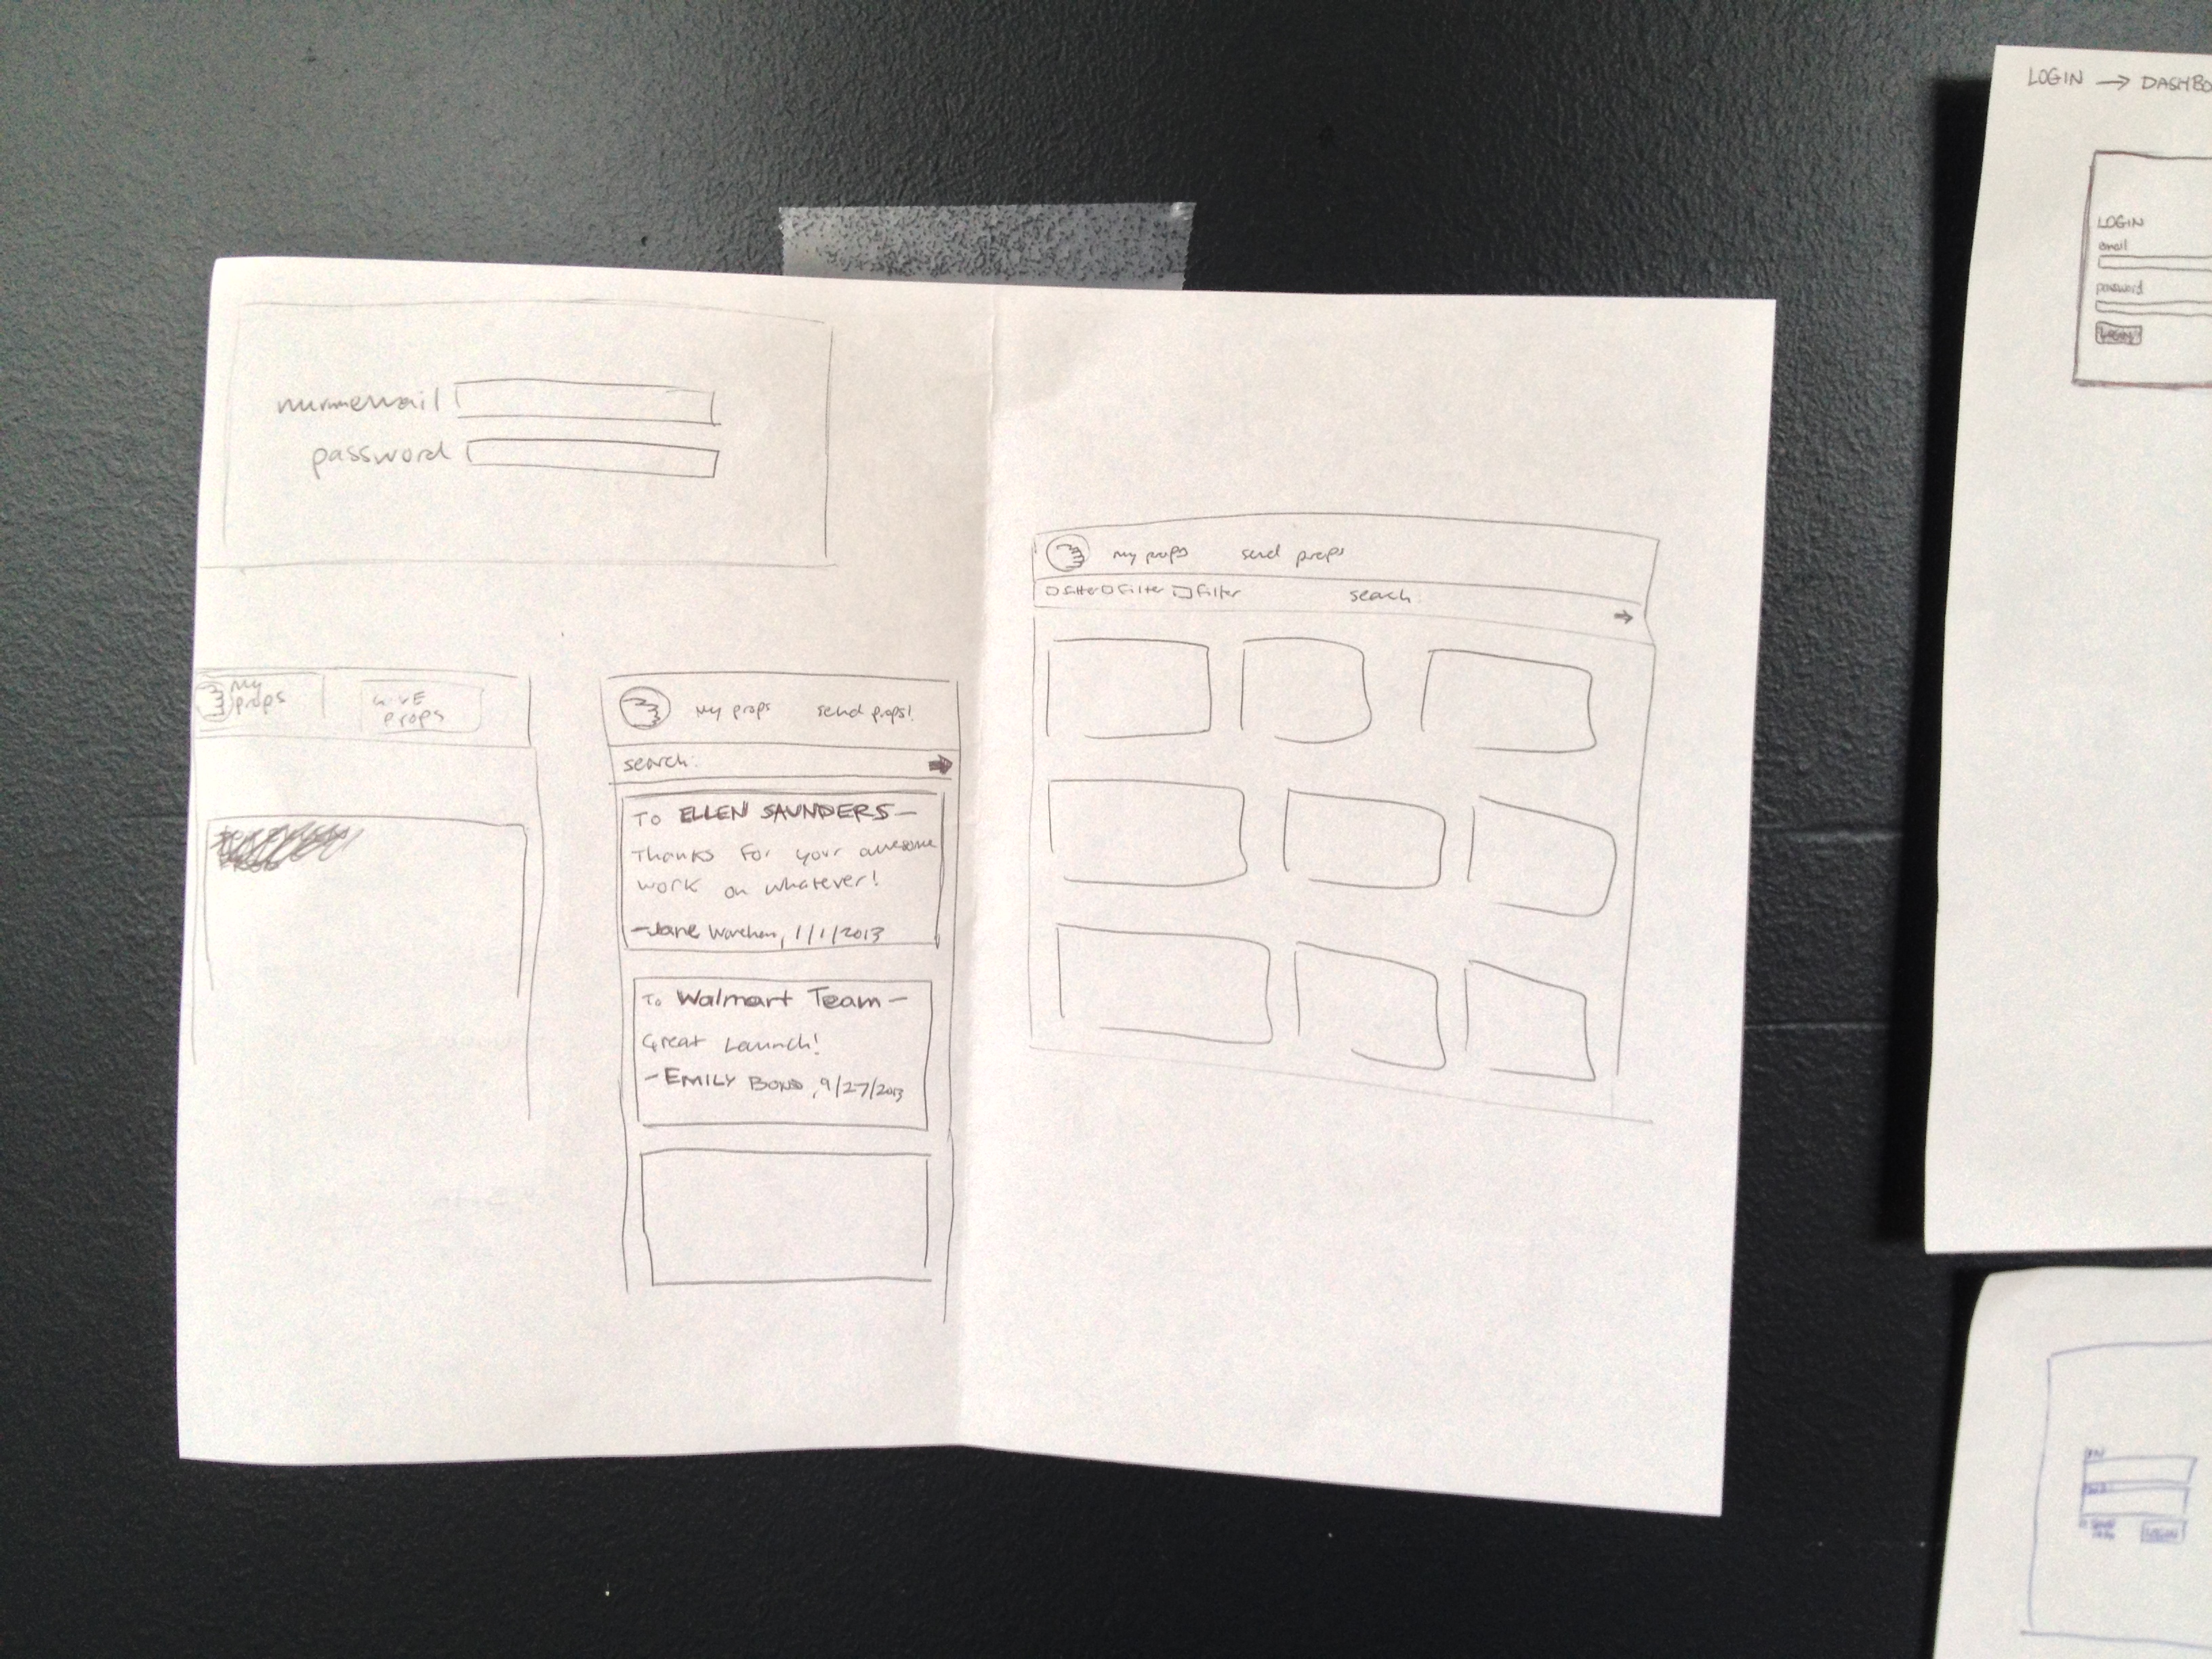 email
password
My
props
GIVE
props
My props send props!
search:
To ELLEN SAUNDERS—
Thanks for your awesome
work on whatever!
—Jane, 1/1/2013
To Walmart Team—
Great Launch!
—EMILY BOND, 9/27/2013
my props send props
filter filter filter search:
LOGIN → DASHBO
LOGIN
email
password
LOGIN
LOGIN